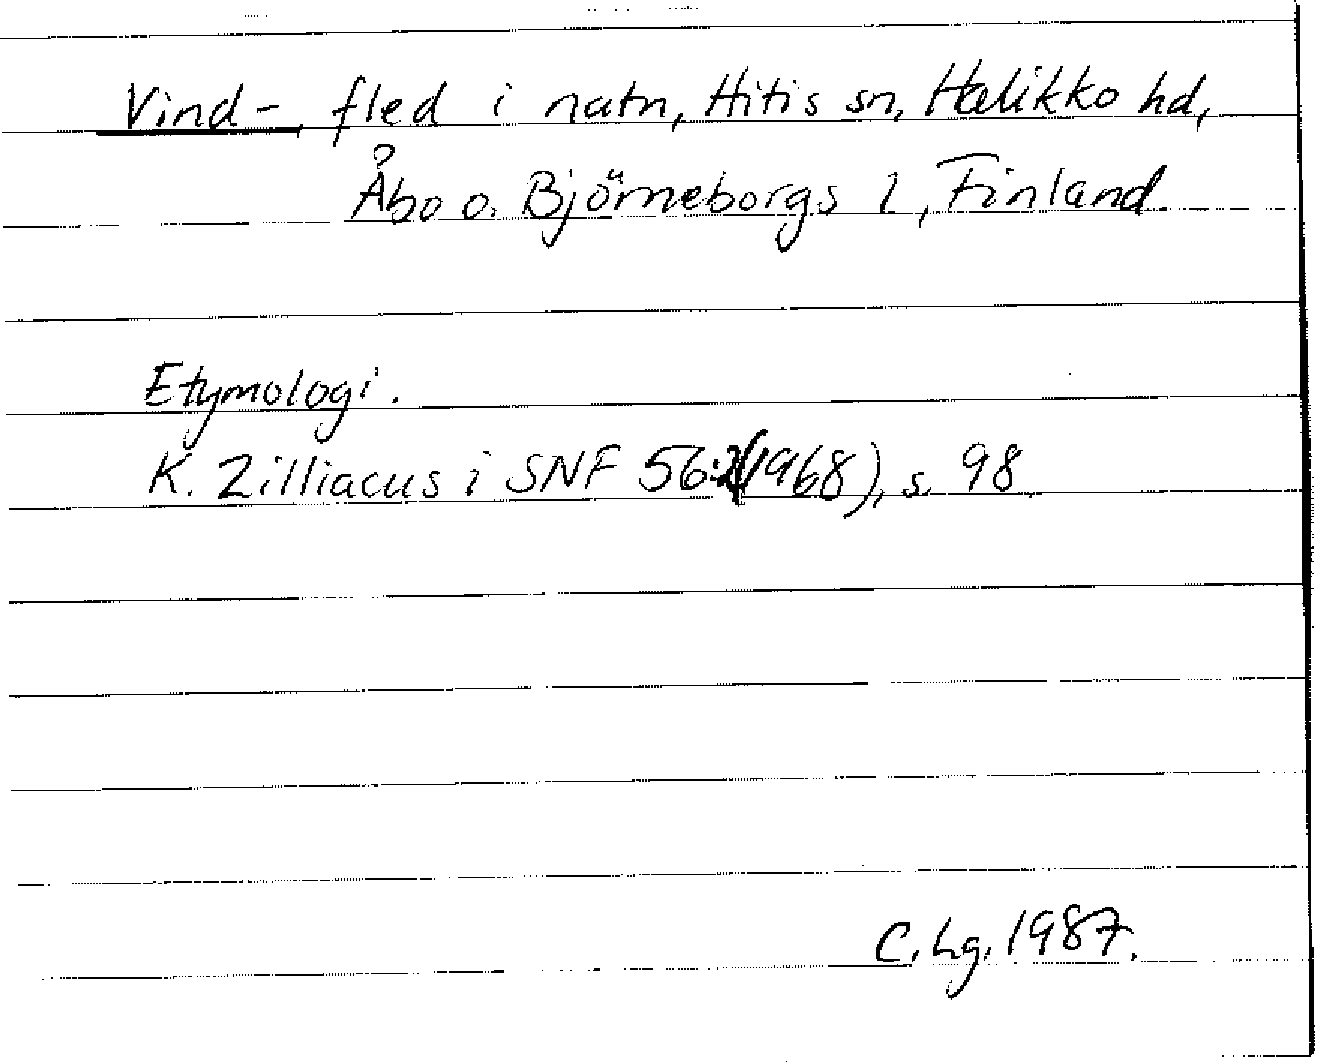 Vind-, fled i natn, Hitis sn, Halikko hd,
Åbo o. Björneborgs l, Finland.
Etymologi.
K. Zilliacus i SNF 56:2(1968), s. 98.
C. Lg. 1987.